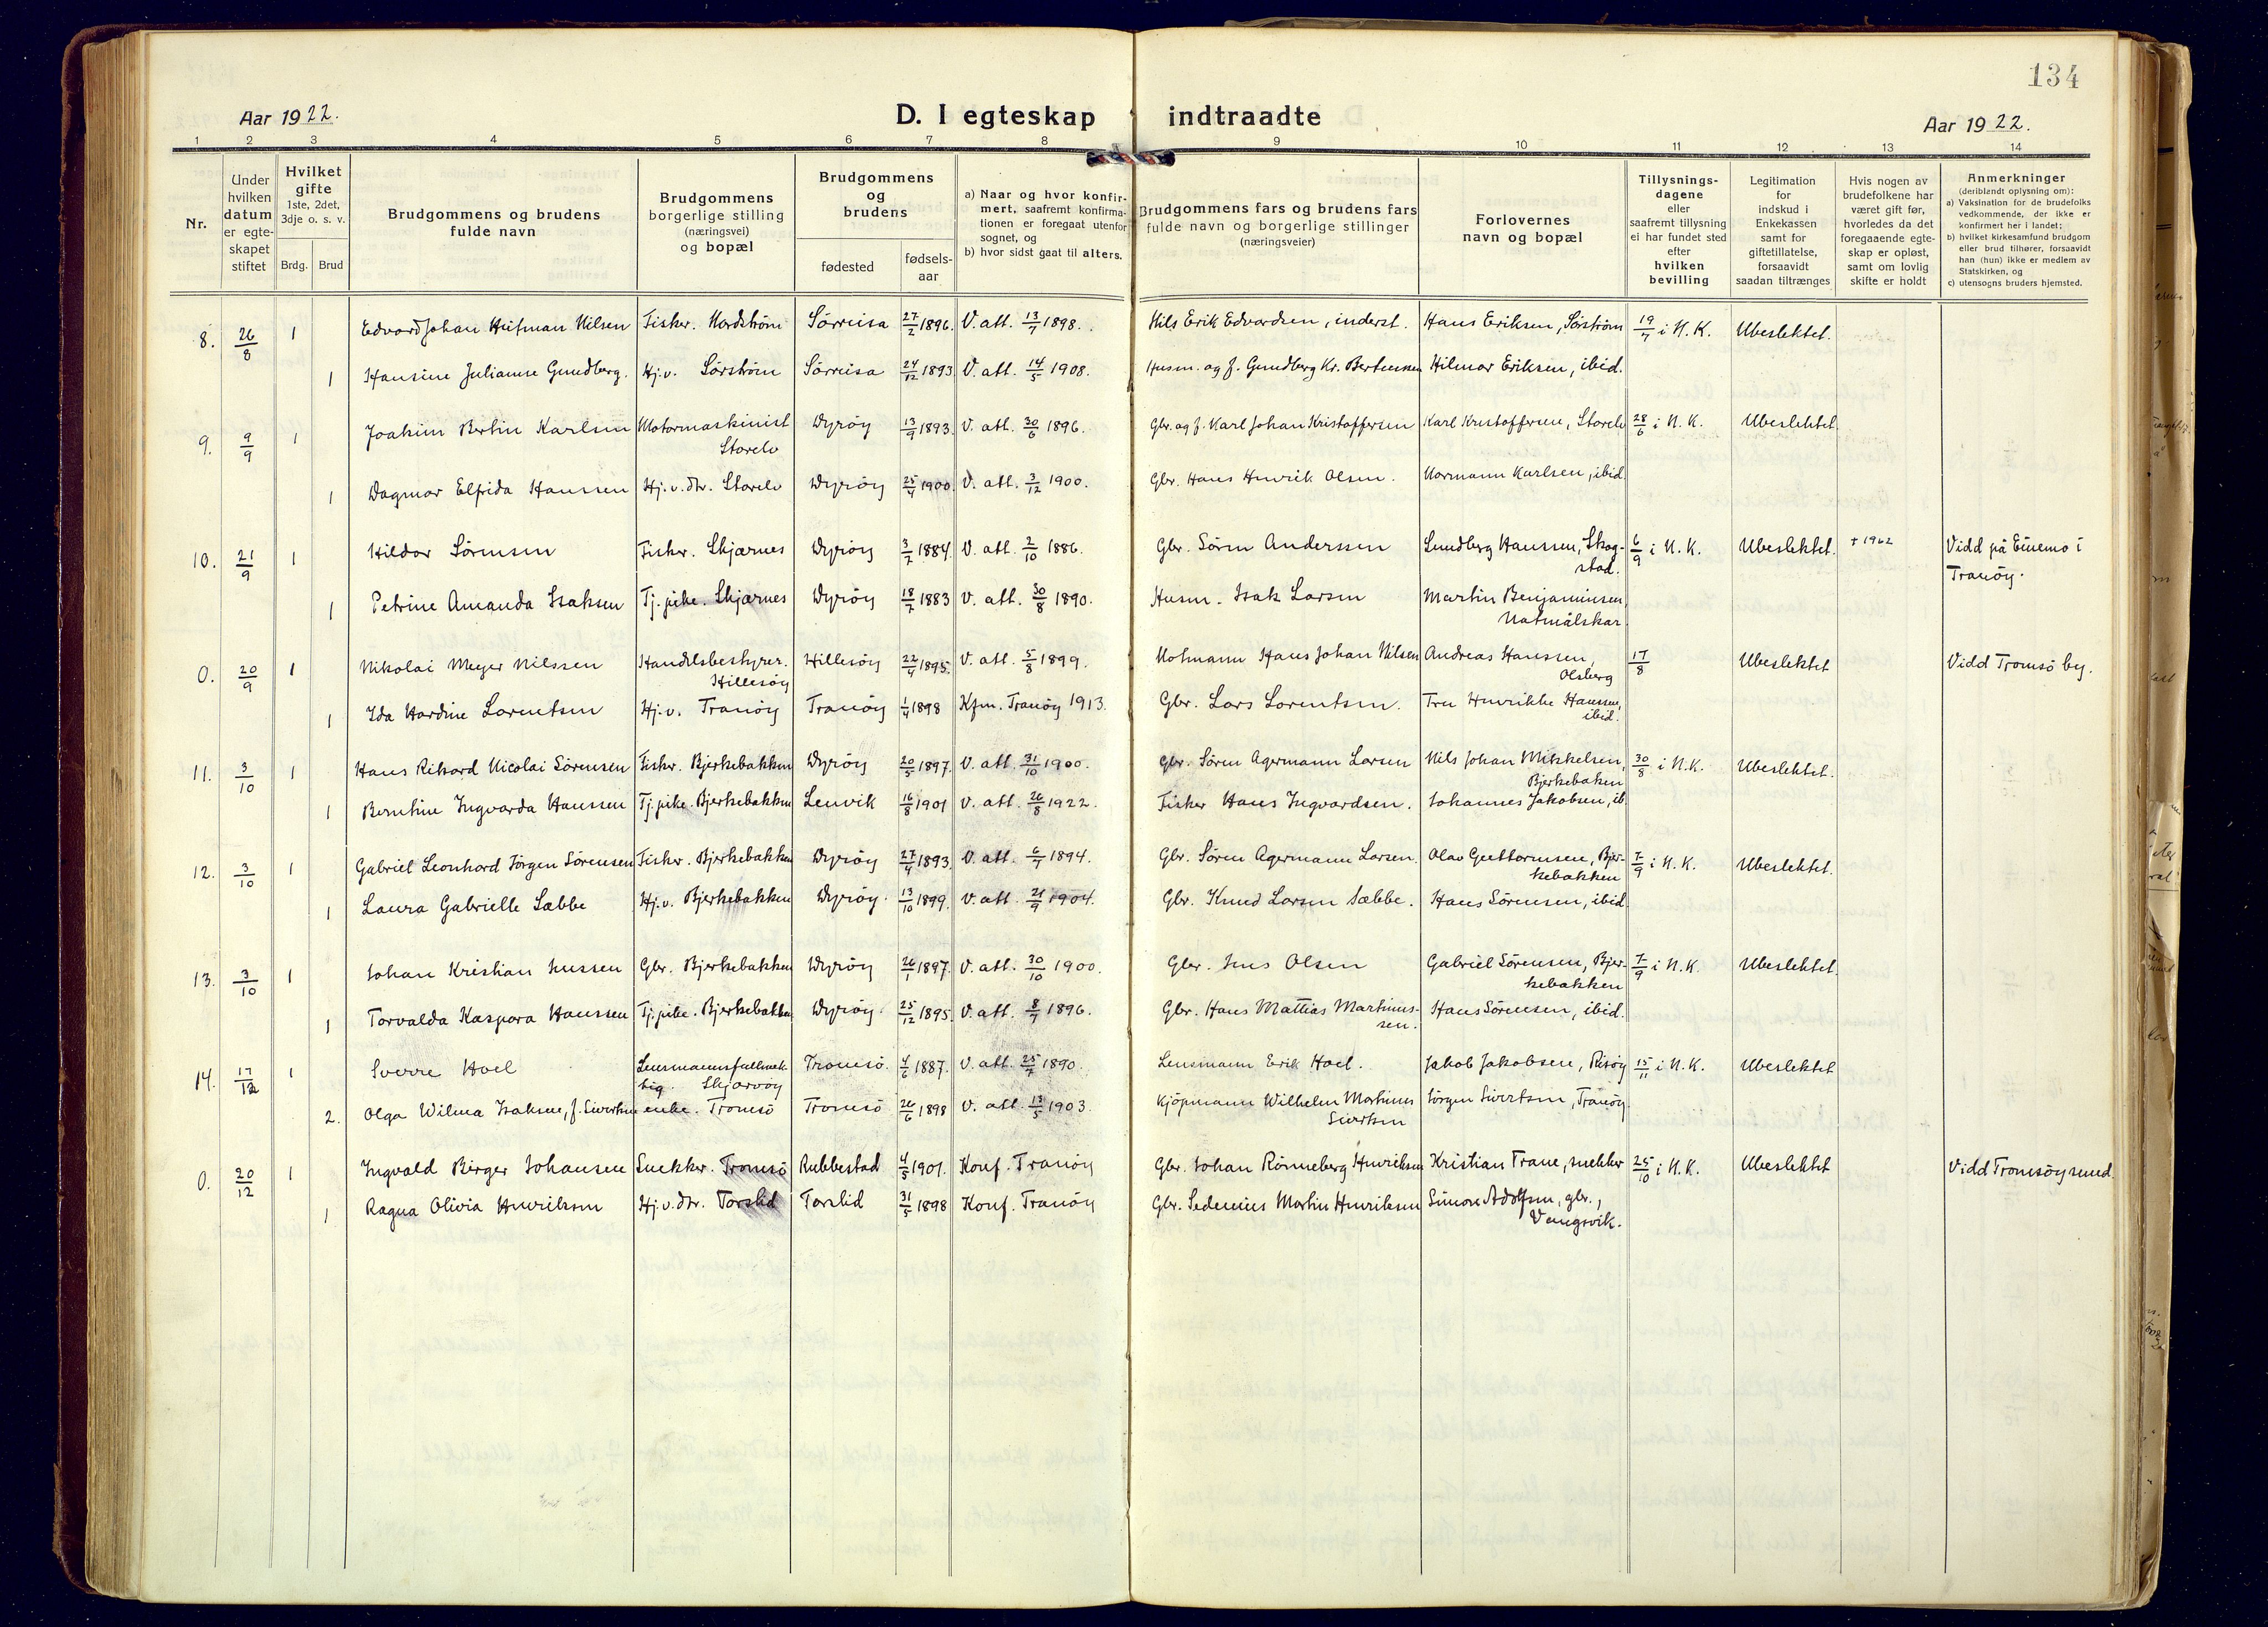 134
Aar 1922.
D. I egteskap indtraadte
Aar 1922.
1 2 3 4 5 6 7 8 9 10 11 12 13 14
Nr.
Under hvilken datum er egteskapet stiftet
Hvilket gifte 1ste, 2det, 3dje o. s. v.
Brdg. Brud
Brudgommens og brudens fulde navn
Brudgommens borgerlige stilling (næringsvei) og bopæl
Brudgommens og brudens
fødested
fødselsaar
a) Naar og hvor konfirmert, saafremt konfirmationen er foregaat utenfor sognet, og
b) hvor sidst gaat til alters.
Brudgommens fars og brudens fars fulde navn og borgerlige stillinger (næringsveier)
Forlovernes navn og bopæl
Tillysningsdagene eller saafremt tillysning ei har fundet sted efter hvilken bevilling
Legitimation for indskud i Enkekassen samt for giftetillatelse, forsaavidt saadan tiltrænges
Hvis nogen av brudefolkene har været gift før, hvorledes da det foregaaende egteskap er opløst, samt om lovlig skifte er holdt
Anmerkninger (deriblandt oplysning om):
a) Vaksination for de brudefolks vedkommende, der ikke er konfirmert her i landet;
b) hvilket kirkesamfund brudgom eller brud tilhører, forsaavidt han (hun) ikke er medlem av Statskirken, og
c) utensogns bruders hjemsted.
8. 26/8 1 Edvard Johan Nilsen Fisker. Nordström Sörreisa 27/2 1896. V. att. 13/7 1898. Nils Erik Edvardsen, inderst. Hans Eriksen, Sörström 19/7 i N. K. Ubeslektet.
1 Hansine Julianne Gundberg. Hj.v. Sörström Sörreisa 24/12 1893 V. att. 14/5 1908. Husm. og f. Gundberg Kr. Berntensen Hilmar Eriksen, ibid.
9. 9/9 1 Joakim Bertin Karlsen Motormaskinist Dyröy 13/9 1893. V. att. 30/6 1896. Gbr. og f. Karl Johan Kristoffersen Karl Kristoffersen, Storelv 28/6 i N. K. Ubeslektet.
Storelv
1 Dagmar Elfrida Hanssen Hj.v.dtr. Storelv Dyröy 25/4 1900. V. att. 3/12 1900. Gbr. Hans Henrik Olsen. Normann Karlsen, ibid.
10. 21/9 1 Hildor Sörensen Fisker. Skjærnes Dyröy 3/7 1884. V. att. 2/10 1886. Gbr. Sören Anderssen Lundberg Hanssen, Skogstad. 6/9 i N. K. Ubeslektet. † 1962 Vidd på Einemo i
Tranöy.
1 Petrine Amanda Isaksen Tj.pike. Skjærnes Dyröy 18/7 1883 V. att. 30/8 1890. Husm. Isak Larsen Martin Benjaminsen,
Natmålskar.
0. 20/9 1 Nikolai Meyer Nilssen Handelsbestyrer. Hillesöy 22/4 1895. V. att. 5/8 1899. Notmann Hans Johan Nilsen Andreas Hanssen, 17/8 Ubeslektet Vidd Tromsö by.
Hillesöy
Olsberg
1 Ida Hardine Lorentsen Hj.v. Tranöy Tranöy 1/4 1898 Kfm. Tranöy 1913. Gbr. Lars Lorentsen. Fru Henrikke Hanssen,
ibid.
11. 3/10 1 Hans Rikard Nicolai Sörensen Fisker. Bjerkebakken Dyröy 20/5 1897. V. att. 31/10 1900. Gbr. Sören Agermann Larsen Nils Johan Mikkelsen, 30/8 i N.K. Ubeslektet.
Bjerkebakken
1 Berntine Ingvarda Hanssen Tj.pike. Bjerkebakken Lenvik 16/8 1901 V. att. 26/8 1922. Fisker Hans Ingvardsen. Johannes Jakobsen, ib.
12. 3/10 1 Gabriel Leonhard Jörgen Sörensen Fisker. Bjerkebakken Dyröy 27/4 1893. V. att. 6/7 1894. Gbr. Sören Agermann Larsen. Olav Guttormsen, Bjerkebakken 7/9 i N. K. Ubeslektet.
1 Laura Gabrielle Sæbbe Hj.v. Bjerkebakken Dyröy. 13/10 1899. V. att. 21/9 1904. Gbr. Knud Larsen Sæbbe. Hans Sörensen, ibid.
13. 3/10 1 Johan Kristian Jenssen Gbr. Bjerkebakken Dyröy 26/1 1897. V. att. 30/10 1900. Gbr. Jens Olsen Gabriel Sörensen, Bjerkebakken 7/9 i N.K. Ubeslektet.
1 Torvalda Kaspara Hanssen Tj.pike. Bjerkebakken Dyröy. 25/12 1895. V. att. 8/7 1896. Gbr. Hans Mattias Martinussen. Hans Sörensen, ibid.
14. 17/12 1 Sverre Hoel Lensmannsfullmektig. Skjærvöy Tromsö. 4/6 1887. V. att. 25/7 1890. Lensmann Erik Hoel. Jakob Jakobsen, Risöy 15/11 i N. K. Ubeslektet
2. Olga Wilma Isaksen, f. Sivertsen enke. Tromsö Tromsö 26/6 1898 V. att. 13/5 1903. Kjöpmann Wilhelm Martinus Sivertsen Jörgen Sivertsen, Tranöy.
0. 20/12 1 Ingvald Birger Johansen Snekker. Tromsö Rubbestad 4/5 1901. Konf. Tranöy Gbr. Johan Rönneberg Henriksen Kristian Trane, snekker 25/10 i N. K. Ubeslektet Vidd Tromsöysund.
1 Ragna Olivia Henriksen Hj.v.dtr. Torslid Torslid 31/5 1898 Konf. Tranöy Gbr. Sedenius Martin Henriksen Simon Adolfsen, gbr.,
Vangsvik.